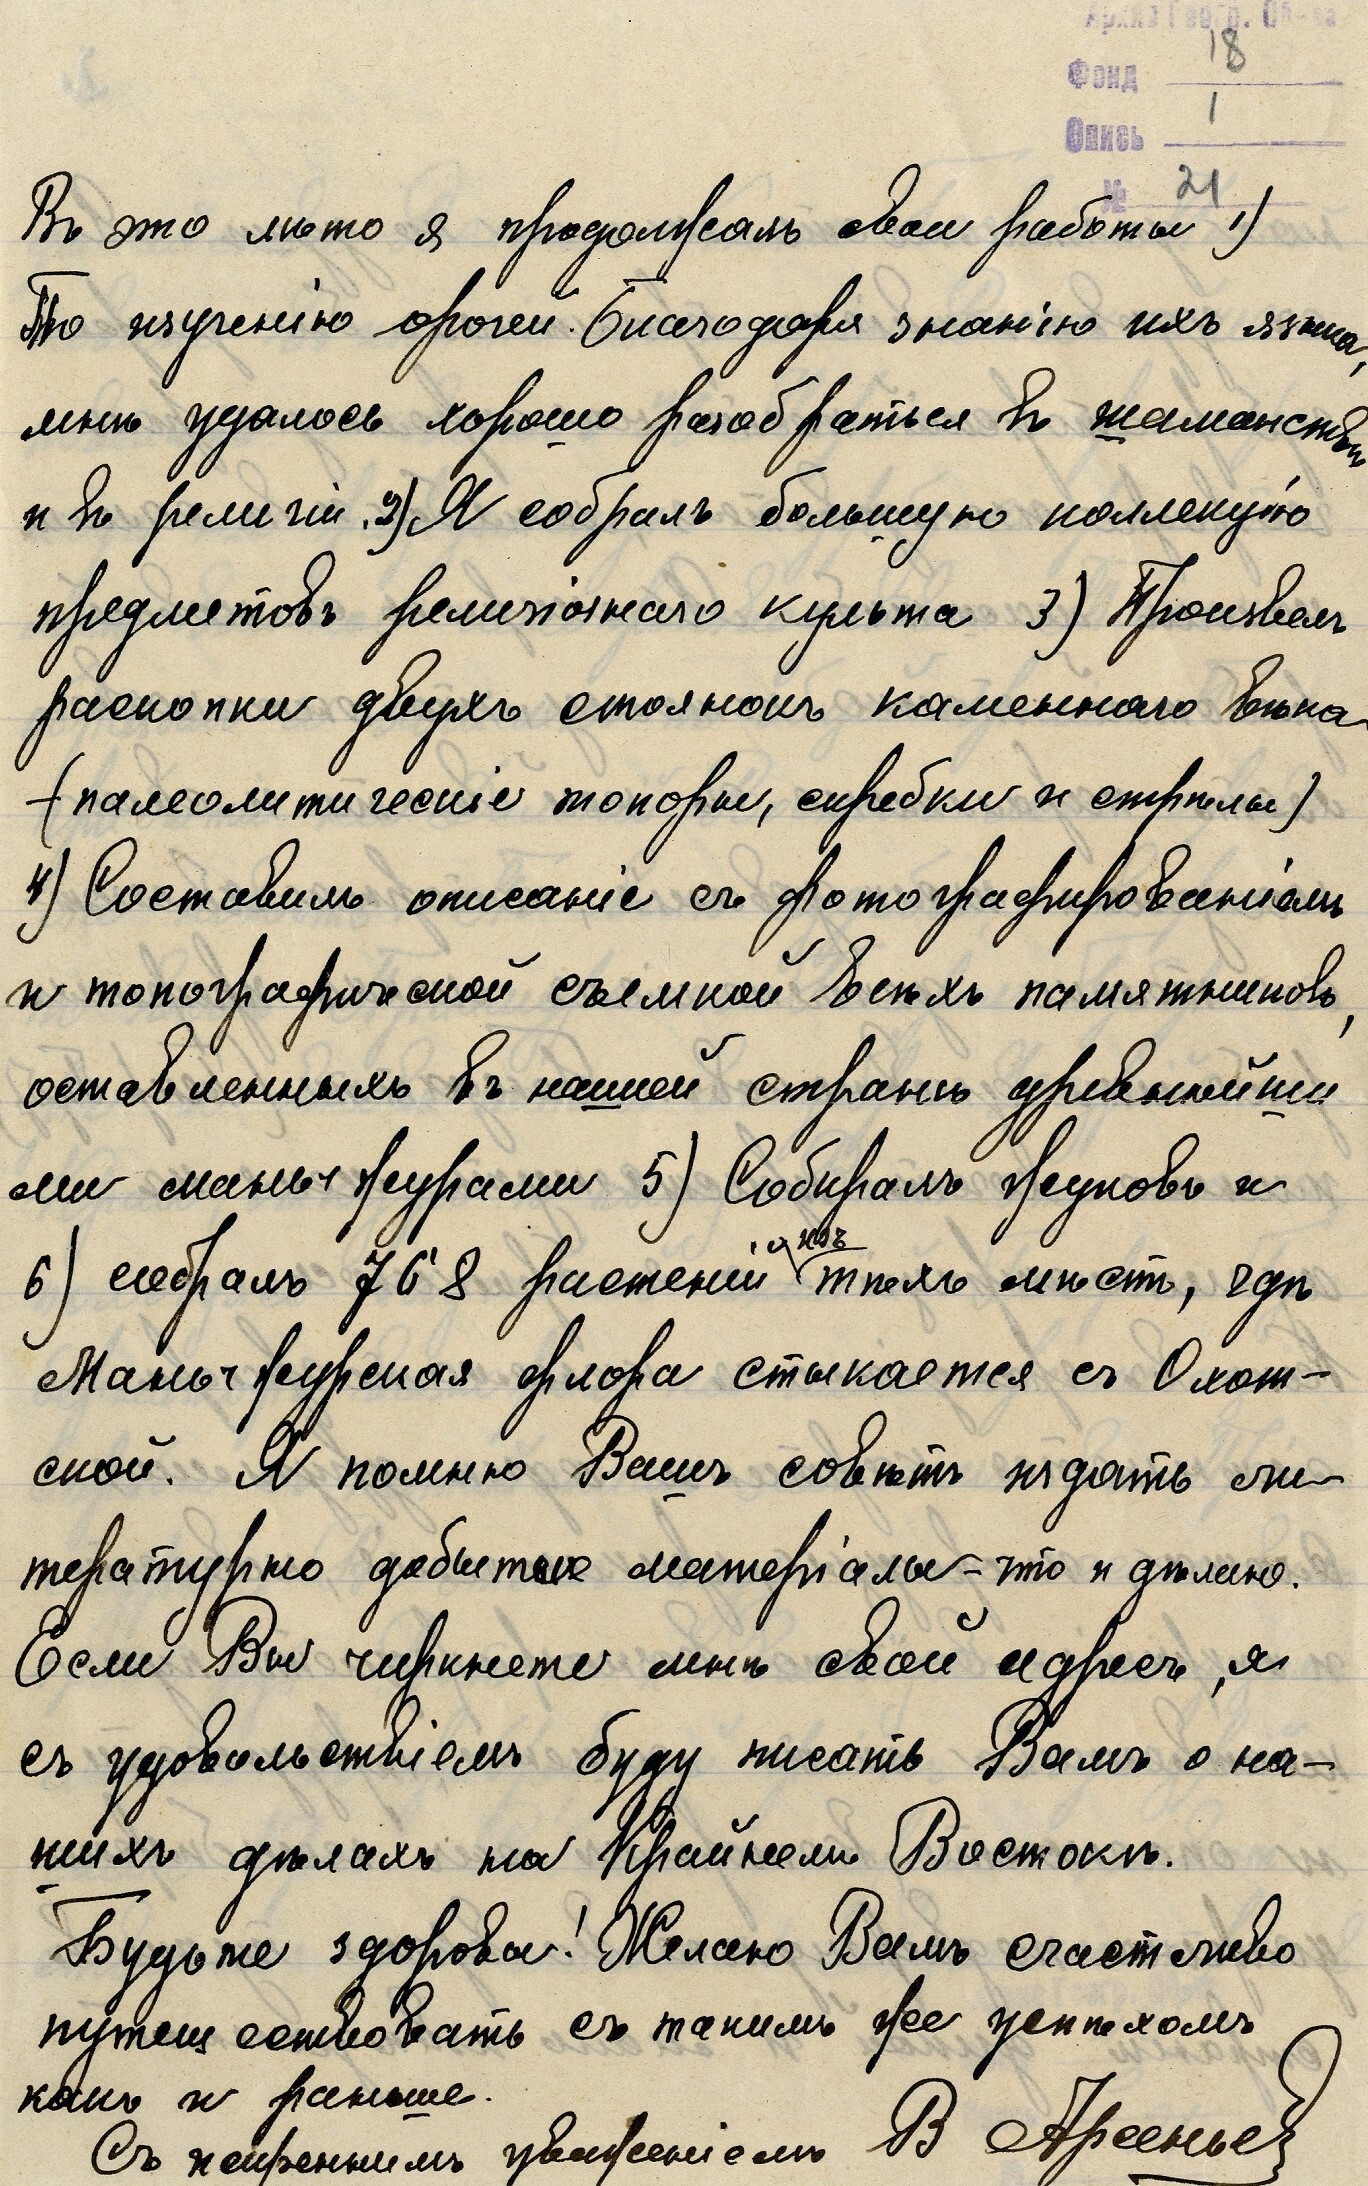 Архив Геогр. Об-ва
Фонд 18
Опись 1
№ 21
Въ это лѣто я продолжалъ свои работы 1)
По изученію орочей. Благодаря знанію ихъ языка,
мнѣ удалось хорошо разобраться въ шаманствѣ
и въ религіи. 2) Я собралъ большую коллекцію
предметовъ религіознаго культа 3) Произвелъ
раскопки двухъ стоянокъ каменнаго вѣка
(палеолитическіе топоры, скребки и стрѣлы)
4) Составилъ описаніе съ фотографированіемъ
и топографической съемкой всѣхъ памятниковъ,
оставленныхъ въ нашей странѣ древнѣйши
ми маньчжурами 5) Собиралъ жуковъ и
6) собралъ 768 растеній изъ тѣхъ мѣстъ, гдѣ
Маньчжурская флора стыкается съ Охот-
ской. Я помню Вашъ совѣтъ издать ли-
тературно добытые матеріалы - что и дѣлаю.
Если Вы черкнете мнѣ свой адресъ, я
съ удовольствіемъ буду писать Вамъ о на-
шихъ дѣлахъ на Крайнемъ Востокѣ.
Будьте здоровы! Желаю Вамъ счастливо
путешествовать съ такимъ же успѣхомъ
какъ и раньше.
Съ искреннимъ уваженіемъ В Арсеньев